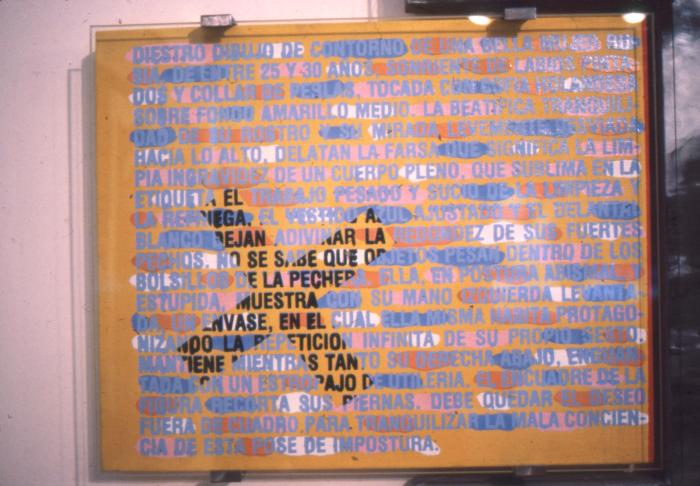 DIESTRO DIBUJO DE CONTORNO DE UNA BELLA MUJER RU-
BIA, DE ENTRE 25 Y 30 AÑOS, SONRIENTE, DE LABIOS PINTA-
DOS Y COLLAR DE PERLAS, TOCADA CON COFIA HOLANDESA
SOBRE FONDO AMARILLO MEDIO. LA BEATIFICA TRANQUILI-
DAD DE SU ROSTRO Y SU MIRADA LEVEMENTE DESVIADA
HACIA LO ALTO, DELATAN LA FARSA QUE SIGNIFICA LA LIM-
PIA INGRAVIDEZ DE UN CUERPO PLENO, QUE SUBLIMA EN LA
ETIQUETA EL TRABAJO PESADO Y SUCIO DE LA LIMPIEZA Y
LA REFRIEGA. EL VESTIDO AZUL AJUSTADO Y EL DELANTAL
BLANCO DEJAN ADIVINAR LA REDONDEZ DE SUS FUERTES
PECHOS, NO SE SABE QUE OBJETOS PESAN DENTRO DE LOS
BOLSILLOS DE LA PECHERA. ELLA, EN POSTURA ABISMAL Y
ESTUPIDA, MUESTRA CON SU MANO IZQUIERDA LEVANTA-
DA, UN ENVASE, EN EL CUAL ELLA MISMA HABITA PROTAGO-
NIZANDO LA REPETICION INFINITA DE SU PROPIO GESTO.
MANTIENE MIENTRAS TANTO SU DERECHA ABAJO, ENGUAN-
TADA CON UN ESTROPAJO DE UTILERIA. EL ENCUADRE DE LA
FIGURA RECORTA SUS PIERNAS. DEBE QUEDAR EL DESEO
FUERA DE CUADRO, PARA TRANQUILIZAR LA MALA CONCIEN-
CIA DE ESTA POSE DE IMPOSTURA.